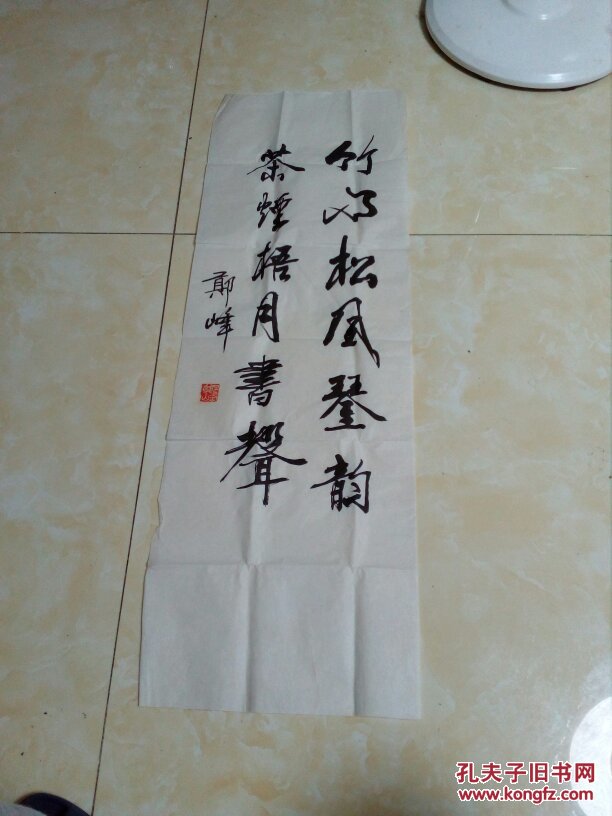 竹雨松風琴韵
茶煙梧月書聲
峰
孔夫子旧书网
www.kongfz.com